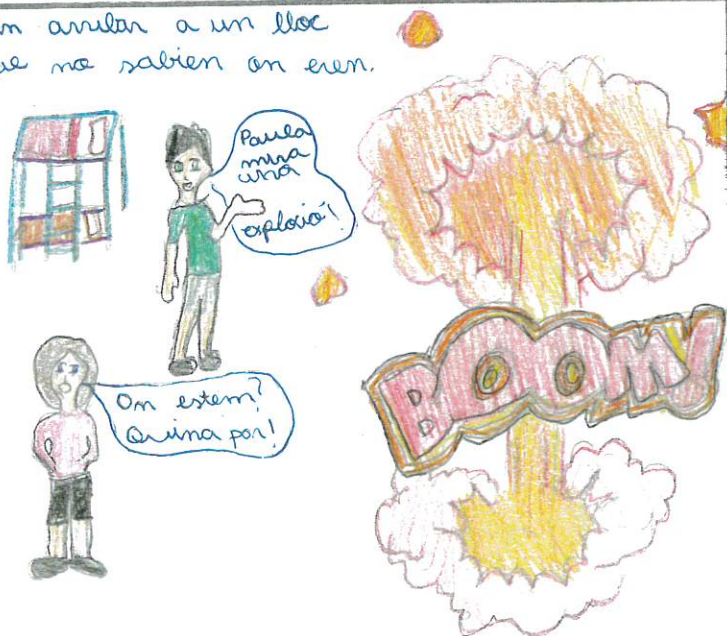 n arribar a un lloc
ue no sabien on eren.
Paula
mira
una
explosió!
BOOMY
On estem?
Quina por!